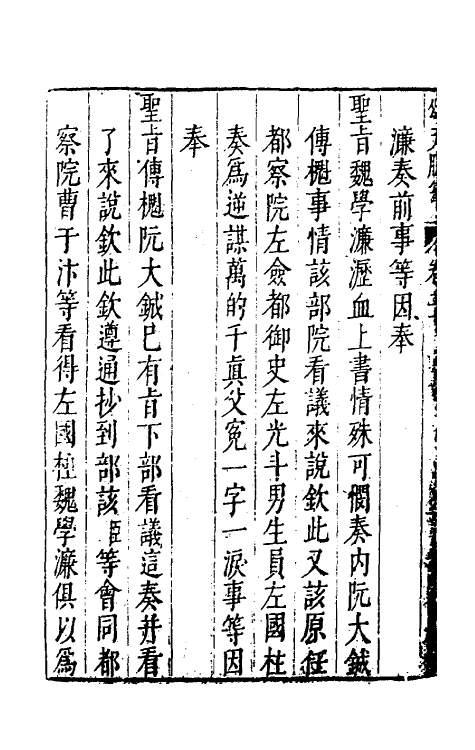 濂奏前事等因奉
聖旨魏學濂瀝血上書情殊可憫奏内阮大鋮
傅櫆事情該部院看議來說欽此又該原任
都察院左僉都御史左光斗男生員左國柱
奏爲逆謀萬的千真父冤一字一淚事等因
奉
聖旨傅櫆阮大鋮已有旨下部看議這奏并看
了來說欽此欽遵通抄到部該臣等會同都
察院曹于汴等看得左國柱魏學濂俱以爲